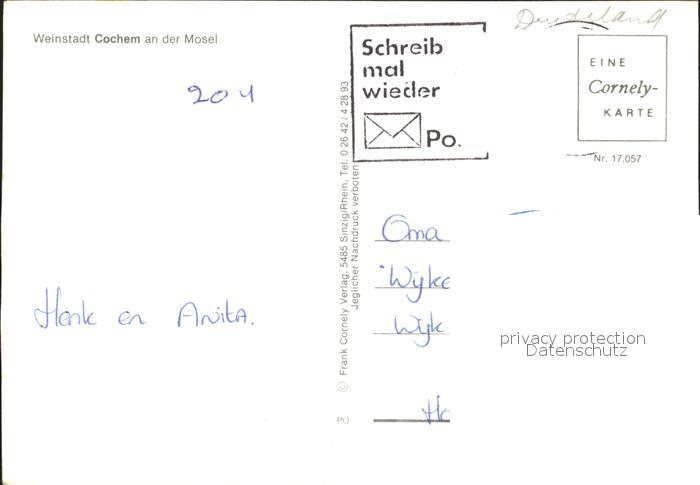 Weinstadt Cochem an der Mosel
204
Henk en Anita.
© Frank Cornely Verlag, 5485 Sinzig/Rhein, Tel. 0 26 42 / 4 28 93
Jeglicher Nachdruck verboten
PO
Schreib
mal
wieder
Po.
Deutschland
EINE
Cornely-
KARTE
Nr. 17.057
Oma
Wijke
Wijk
privacy protection
Datenschutz